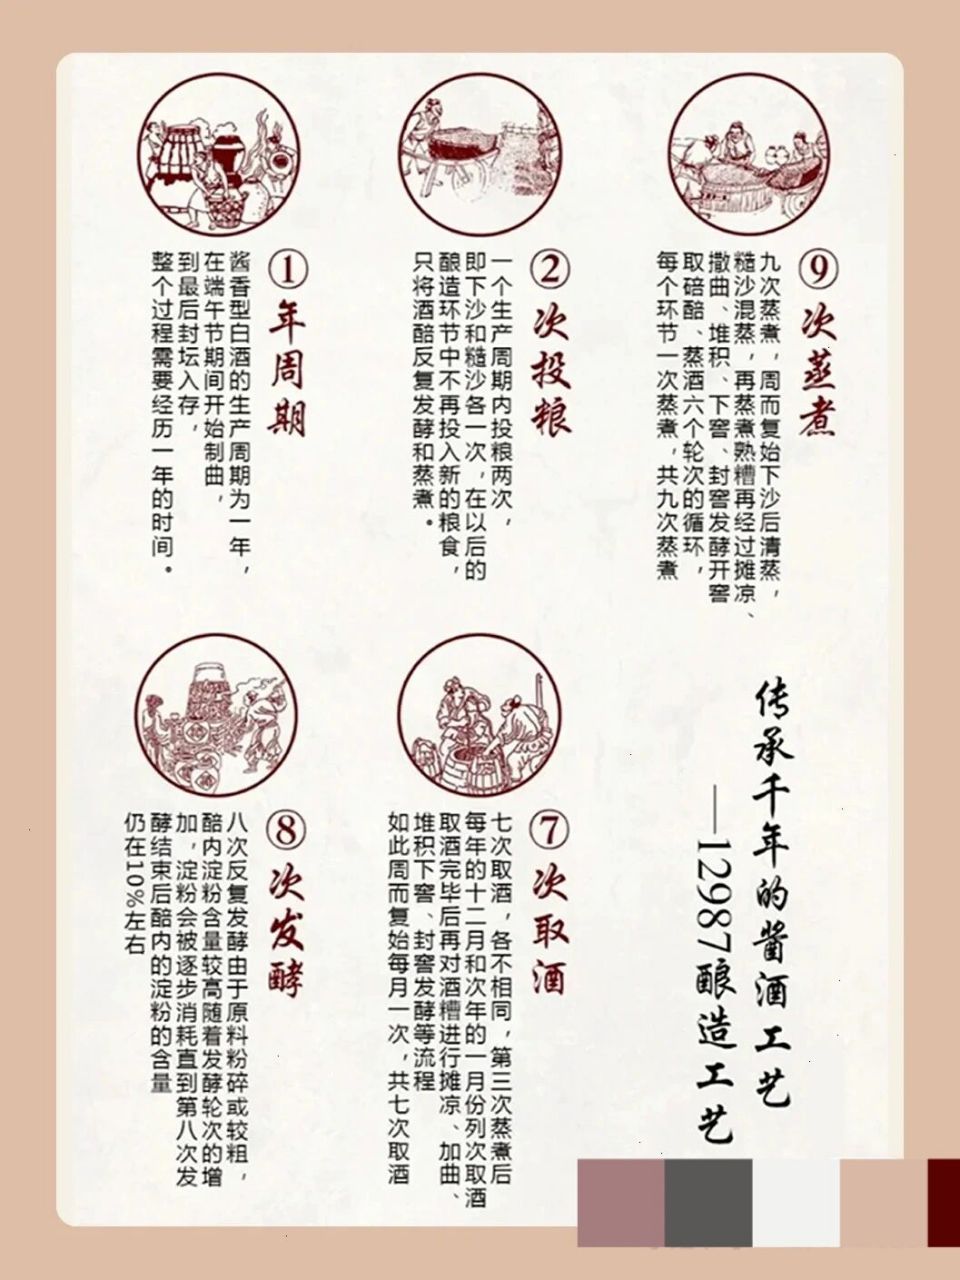 ①年周期
酱香型白酒的生产周期为一年，
在端午节期间开始制曲，
到最后封坛入存，
整个过程需要经历一年的时间。
②次投粮
一个生产周期内投粮两次，
即下沙和糙沙各一次，在以后的
酿造环节中不再投入新的粮食，
只将酒醅反复发酵和蒸煮。
⑨次蒸煮
九次蒸煮，周而复始下沙后清蒸，
糙沙混蒸，再蒸煮熟糟再经过摊凉、
撒曲、堆积、下窖、封窖发酵开窖
取碚醅、蒸酒六个轮次的循环，
每个环节一次蒸煮，共九次蒸煮
⑧次发酵
八次反复发酵由于原料粉碎或较粗，
醅内淀粉含量较高随着发酵轮次的增
加，淀粉会被逐步消耗直到第八次发
酵结束后醅内的淀粉的含量
仍在10%左右
⑦次取酒
七次取酒，各不相同，第三次蒸煮后
每年的十二月和次年的一月份列次取酒
取酒完毕后再对酒糟进行摊凉、加曲、
堆积下窖、封窖发酵等流程
如此周而复始每月一次，共七次取酒
传承千年的酱酒工艺
—12987酿造工艺